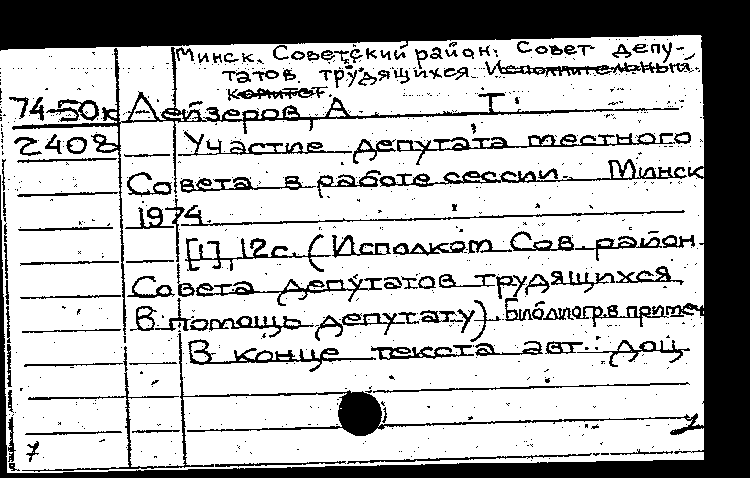 Минск. Советский район. Совет депу-
татов трудящихся Исполнительный
комитет.
74-50к Лейзеров, А Т.
2408 Участие депутата местного
Совета в работе сессии. Минск
1974.
[1], 12с. (Исполком Сов. район.
Совета депутатов трудящихся
В помощь депутату). Библиогр. в примеч
В конце текста авт.: доц
7